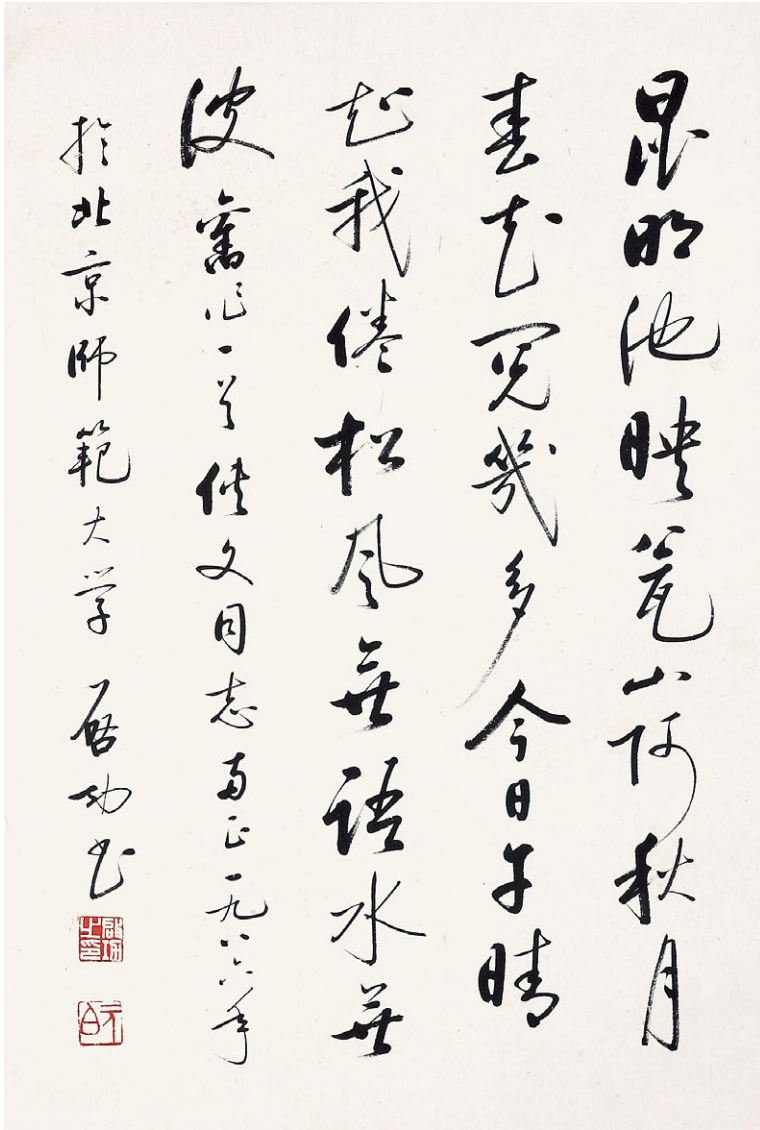 昆明池映瓮山阿秋月
春花閱幾多今日午晴
知我倦松風無語水無
波 舊作一首 侠文同志正一九八六年
於北京師範大学 启功书
啟功之印
元白